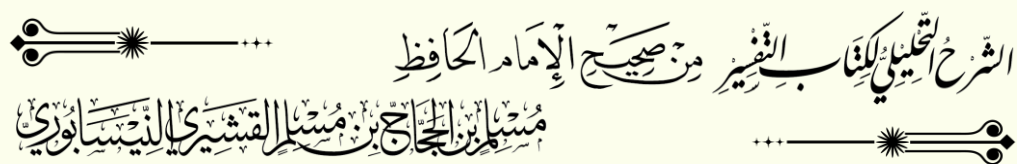 الشَّرْحُ التَّحْلِيلِيُّ لِكِتَابِ التَّفْسِيرِ مِنْ صَحِيحِ الْإِمَامِ الْحَافِظِ
مُسْلِمِ بْنِ الْحَجَّاجِ بْنِ مُسْلِمٍ الْقُشَيْرِيِّ النَّيْسَابُورِيِّ